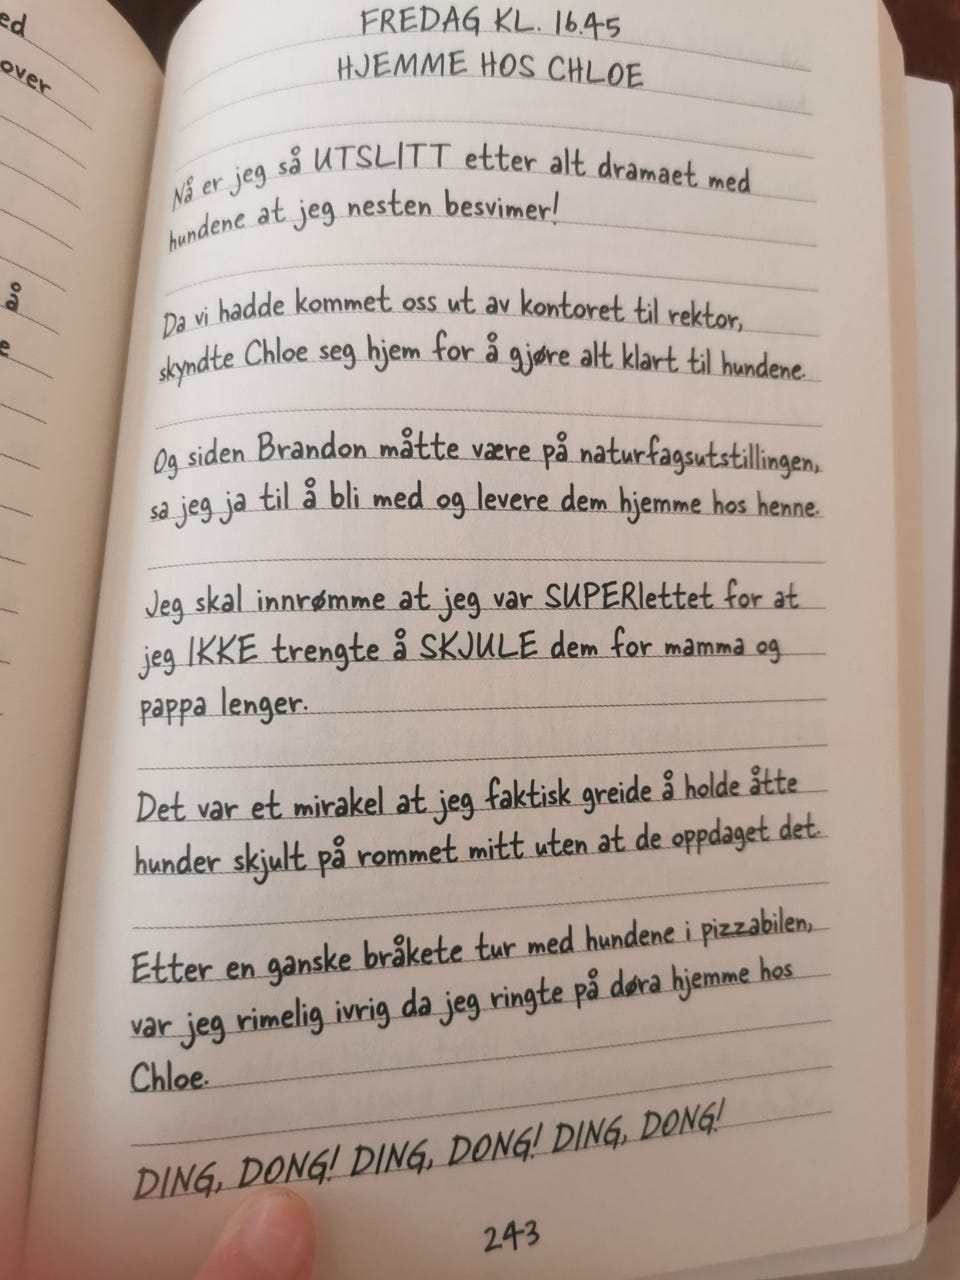 ed
over
å
e
FREDAG KL. 16.45
HJEMME HOS CHLOE
Nå er jeg så UTSLITT etter alt dramaet med
hundene at jeg nesten besvimer!
Da vi hadde kommet oss ut av kontoret til rektor,
skyndte Chloe seg hjem for å gjøre alt klart til hundene.
Og siden Brandon måtte være på naturfagsutstillingen,
sa jeg ja til å bli med og levere dem hjemme hos henne.
Jeg skal innrømme at jeg var SUPERlettet for at
jeg IKKE trengte å SKJULE dem for mamma og
pappa lenger.
Det var et mirakel at jeg faktisk greide å holde åtte
hunder skjult på rommet mitt uten at de oppdaget det.
Etter en ganske bråkete tur med hundene i pizzabilen,
var jeg rimelig ivrig da jeg ringte på døra hjemme hos
Chloe.
DING, DONG! DING, DONG! DING, DONG!
243